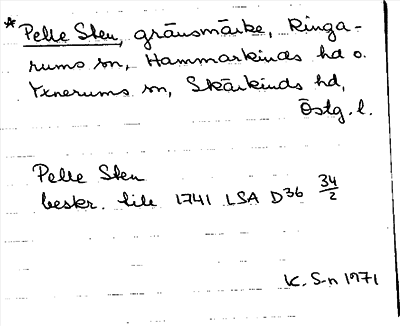 * Pelle Sten, gränsmärke, Ringa-
rums sn, Hammarkinds hd o.
Yxnerums sn, Skärkinds hd,
Östg. l.
Pelle Sten
beskr. till 1741 LSA D36 34/2
K. S-n 1971